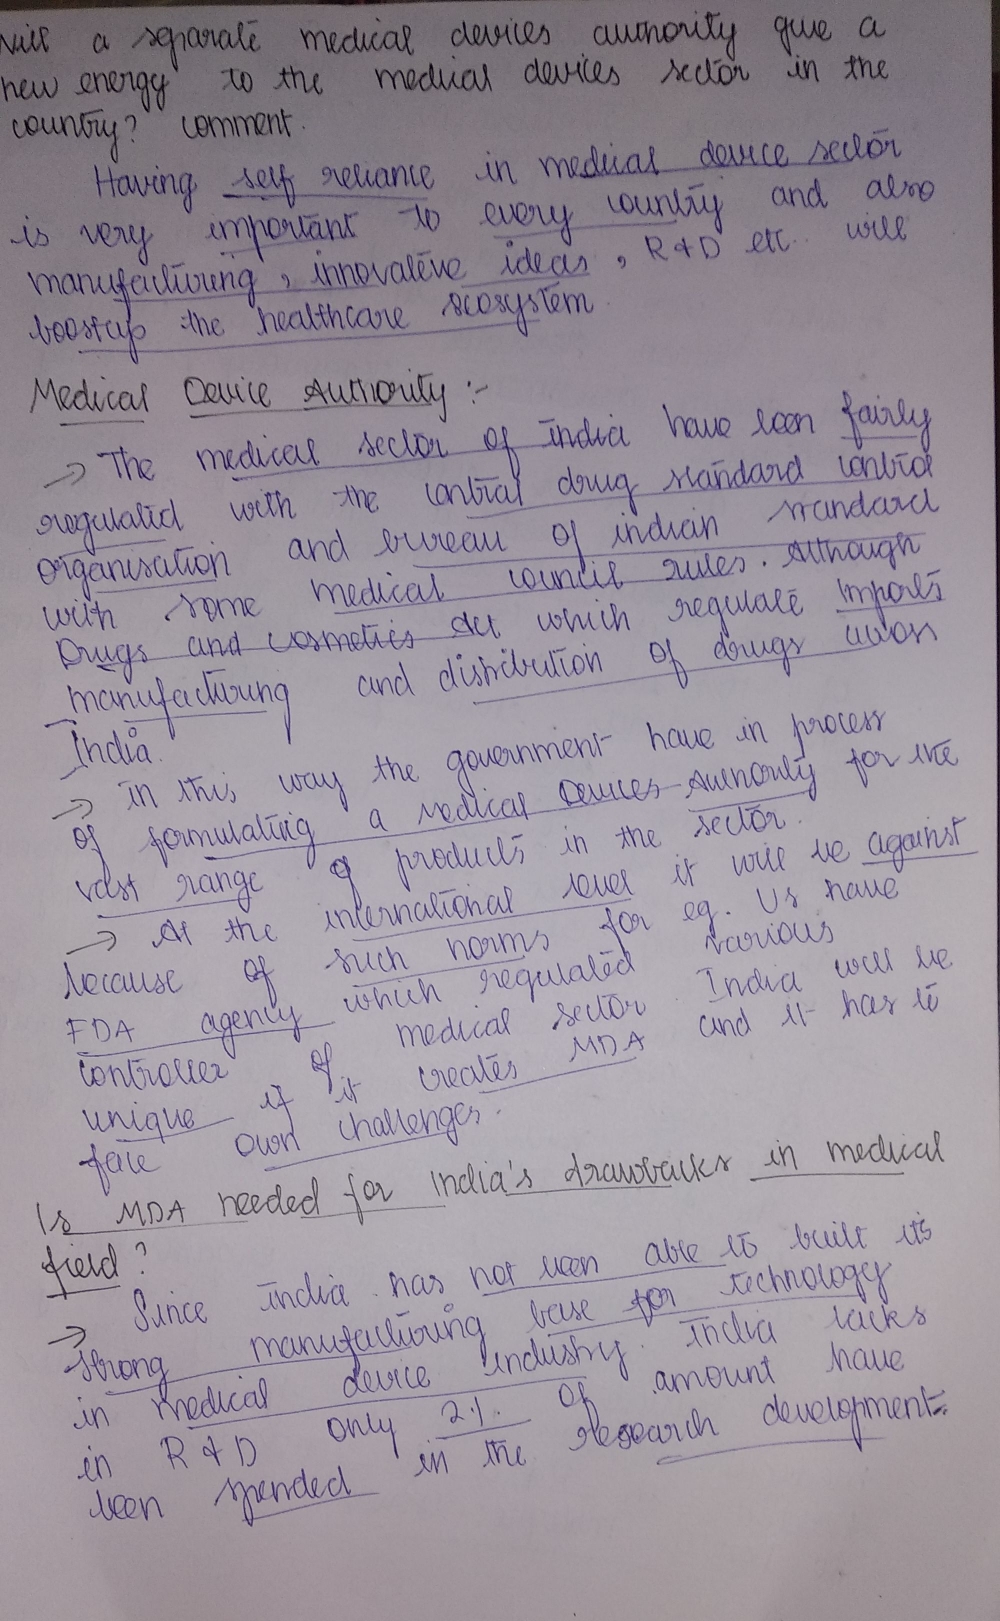 Will a separate medical devices authority give a
new energy to the medical devices sector in the
country? comment.
Having self reliance in medical device sector
is very important to every country and also
manufacturing, innovative ideas, R&D etc. will
boostup the healthcare ecosystem.
Medical Device Authority :-
→ The medical sector of india have been fairly
regulated with the central drug standard control
organisation and bureau of indian standard
with some medical council rules. Although
Drugs and cosmetics Act which regulate imports
manufacturing and distribution of drugs across
India.
→ in this way the government have in process
of formulating a Medical Devices Authority for the
vast range of products in the sector.
→ At the international level it will be against
because of such norms for eg. US have
FDA agency which regulated various
controller of medical sector. India will be
unique if it creates MDA and it has to
face own challenges.
Is MDA needed for India's drawbacks in medical
field?
→ Since india has not been able to built its
strong manufacturing base for technology
in medical device industry. India lacks
in R & D only 2%. of amount have
been spended in the research development.